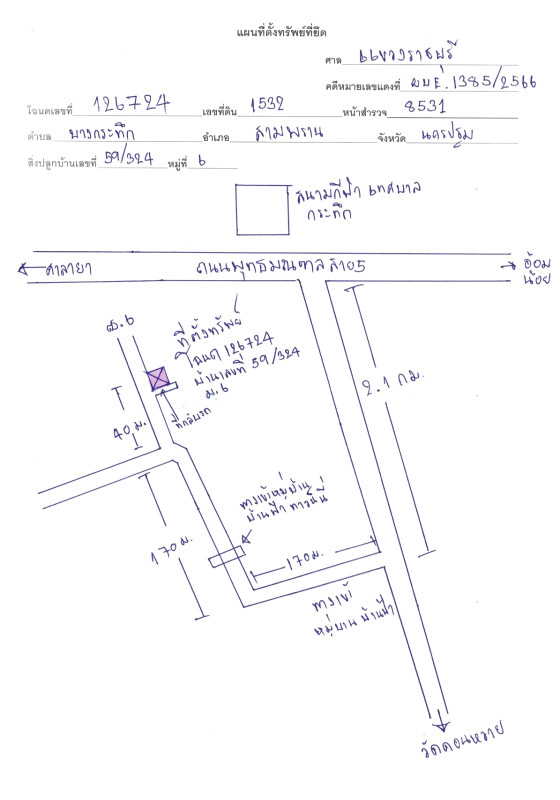 แผนที่ตั้งทรัพย์ที่ยึด
ศาล แขวงราชบุรี
คดีหมายเลขแดงที่ ผบE.1385/2566
โฉนดเลขที่ 126724 เลขที่ดิน 1532 หน้าสำรวจ 8531
ตำบล บางกระทึก อำเภอ สามพราน จังหวัด นครปฐม
สิ่งปลูกบ้านเลขที่ 59/324 หมู่ที่ 6
สนามกีฬา เทศบาล
กระทึก
ศาลายา
ถนนพุทธมณฑลสาย5
อ้อม
น้อย
ซ.6
ที่ตั้งทรัพย์
โฉนด 126724
บ้านเลขที่ 59/324
ม.6
ที่กลับรถ
40 ม.
2.1 กม.
ทางเข้าหมู่บ้าน
บ้านฟ้า ทาวน์นี่
170 ม.
170 ม.
ทางเข้า
หมู่บ้าน บ้านฟ้า
วัดดอนหวาย